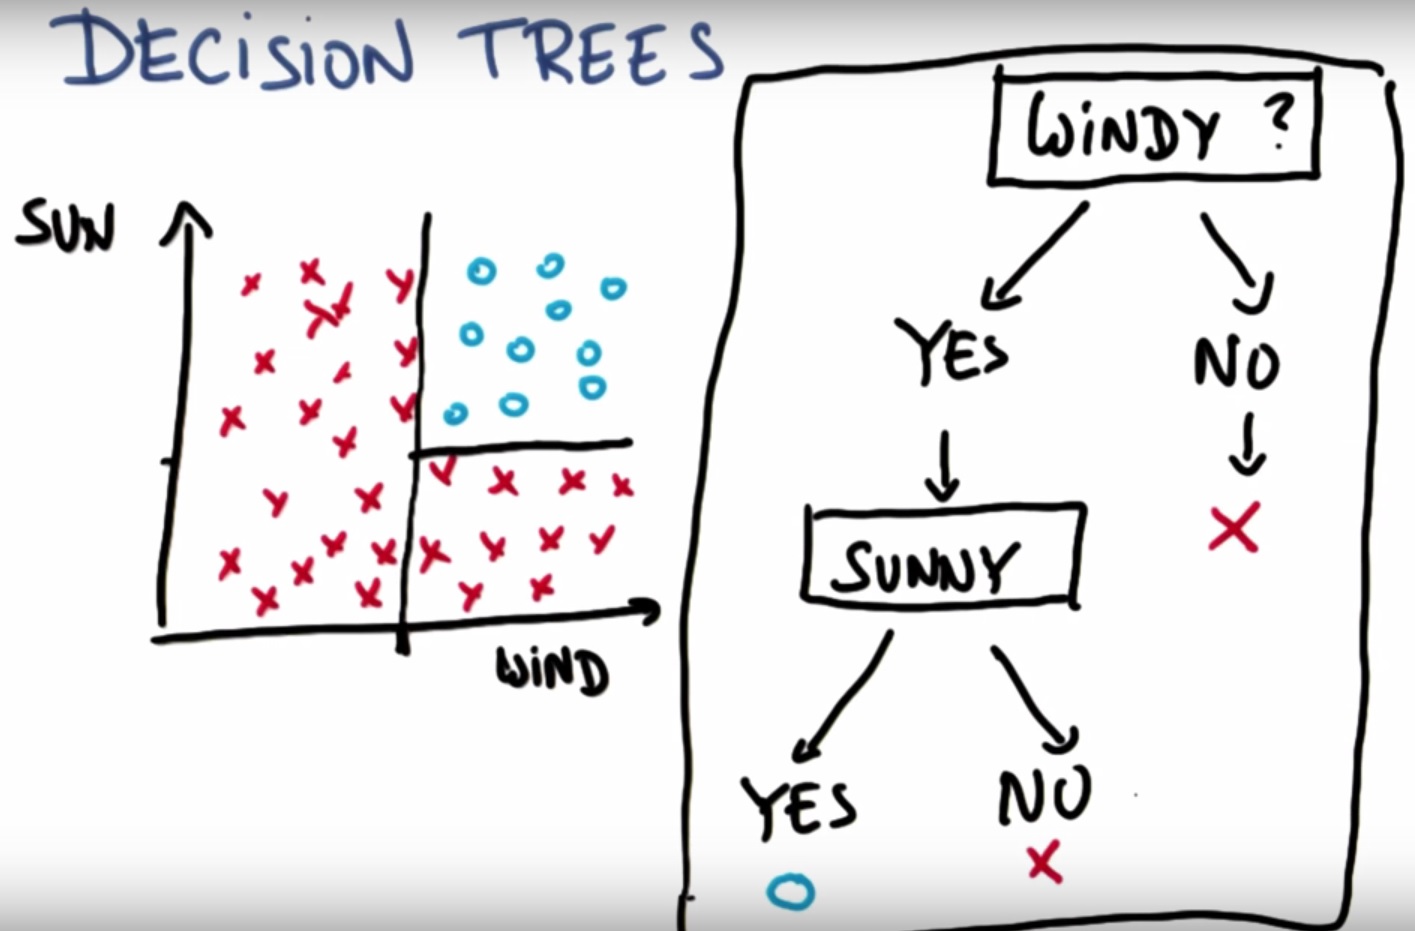 DECiSiON TREES
SUN
WiND
WiNDY ?
YES
NO
SUNNY
YES
NO